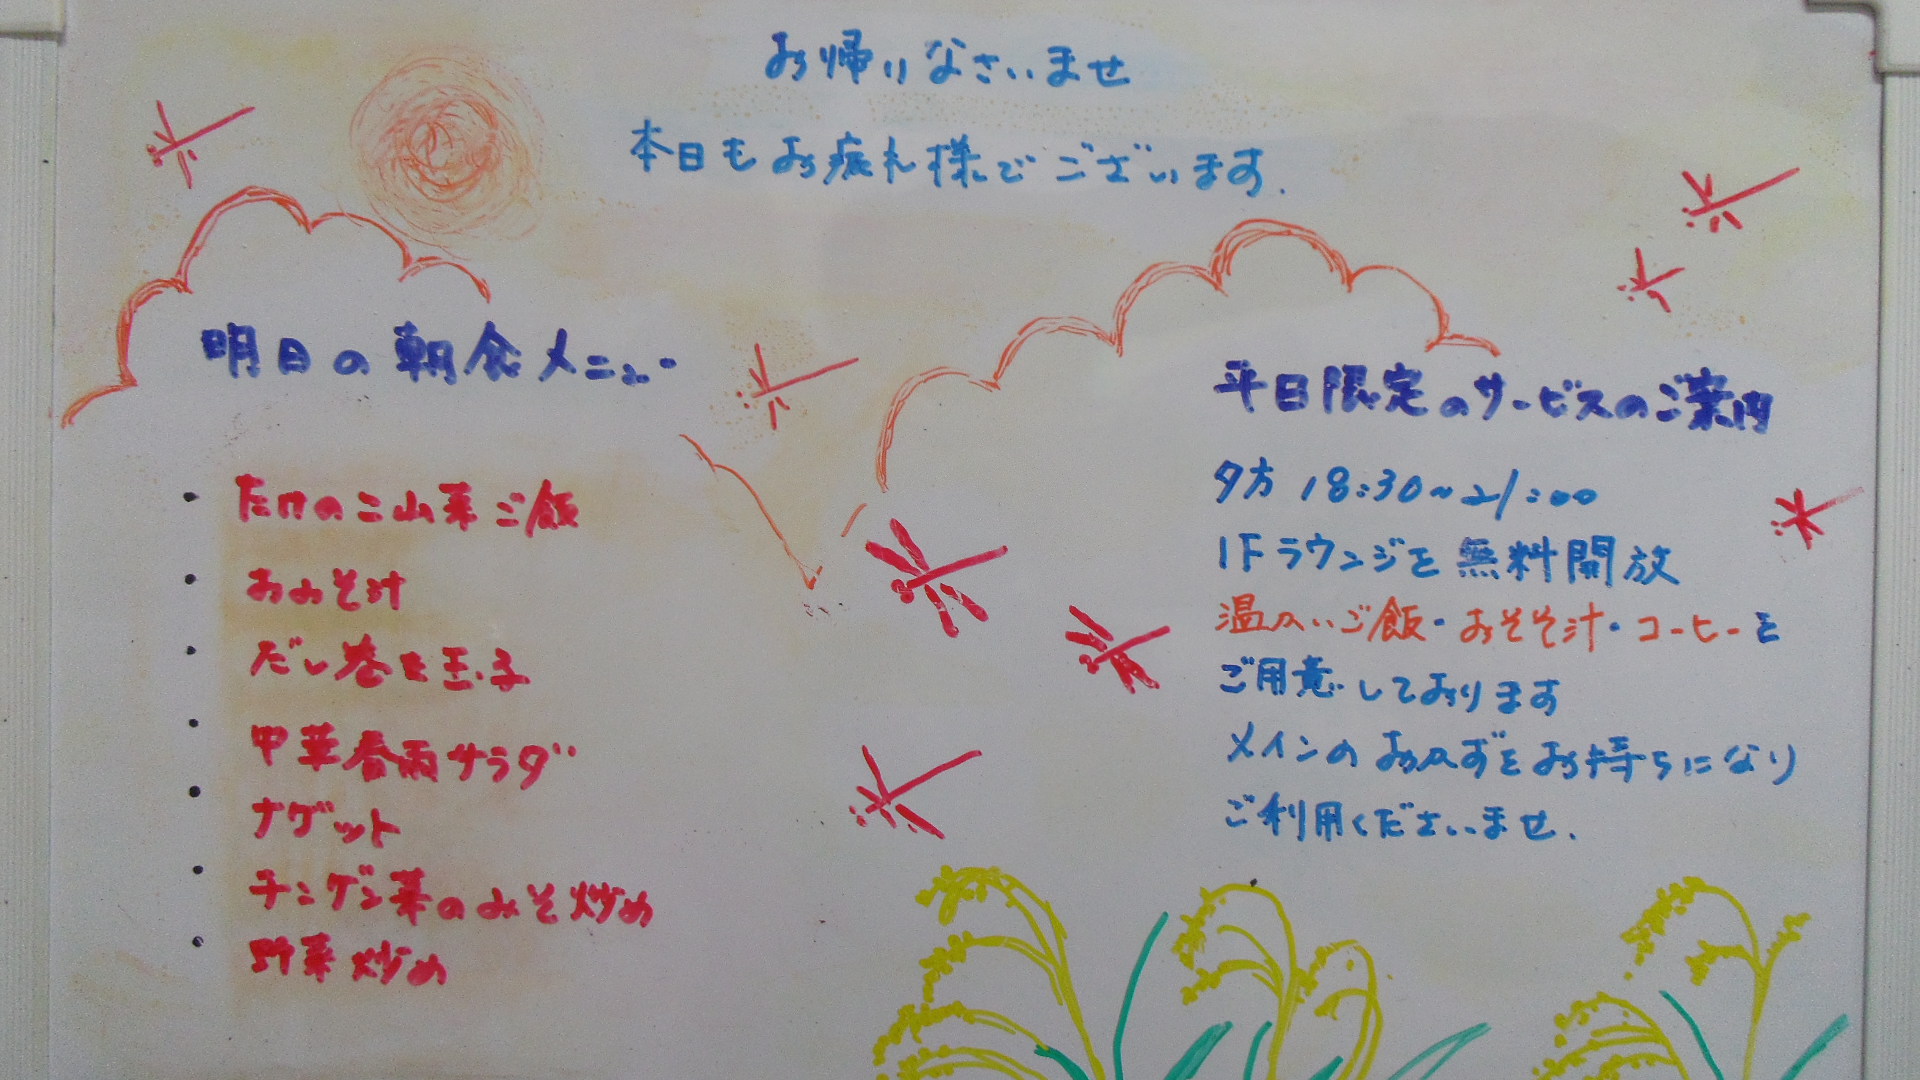 お帰りなさいませ
本日もお疲れ様でございます.
明日の朝食メニュー
・たけのこ山菜ご飯
・おみそ汁
・だし巻き玉子
・中華春雨サラダ
・ナゲット
・チンゲン菜のみそ炒め
・野菜炒め
平日限定のサービスのご案内
夕方 18:30~21:00
1Fラウンジを無料開放
温かいご飯・おみそ汁・コーヒーを
ご用意しております
メインのおかずをお持ちになり
ご利用くださいませ.